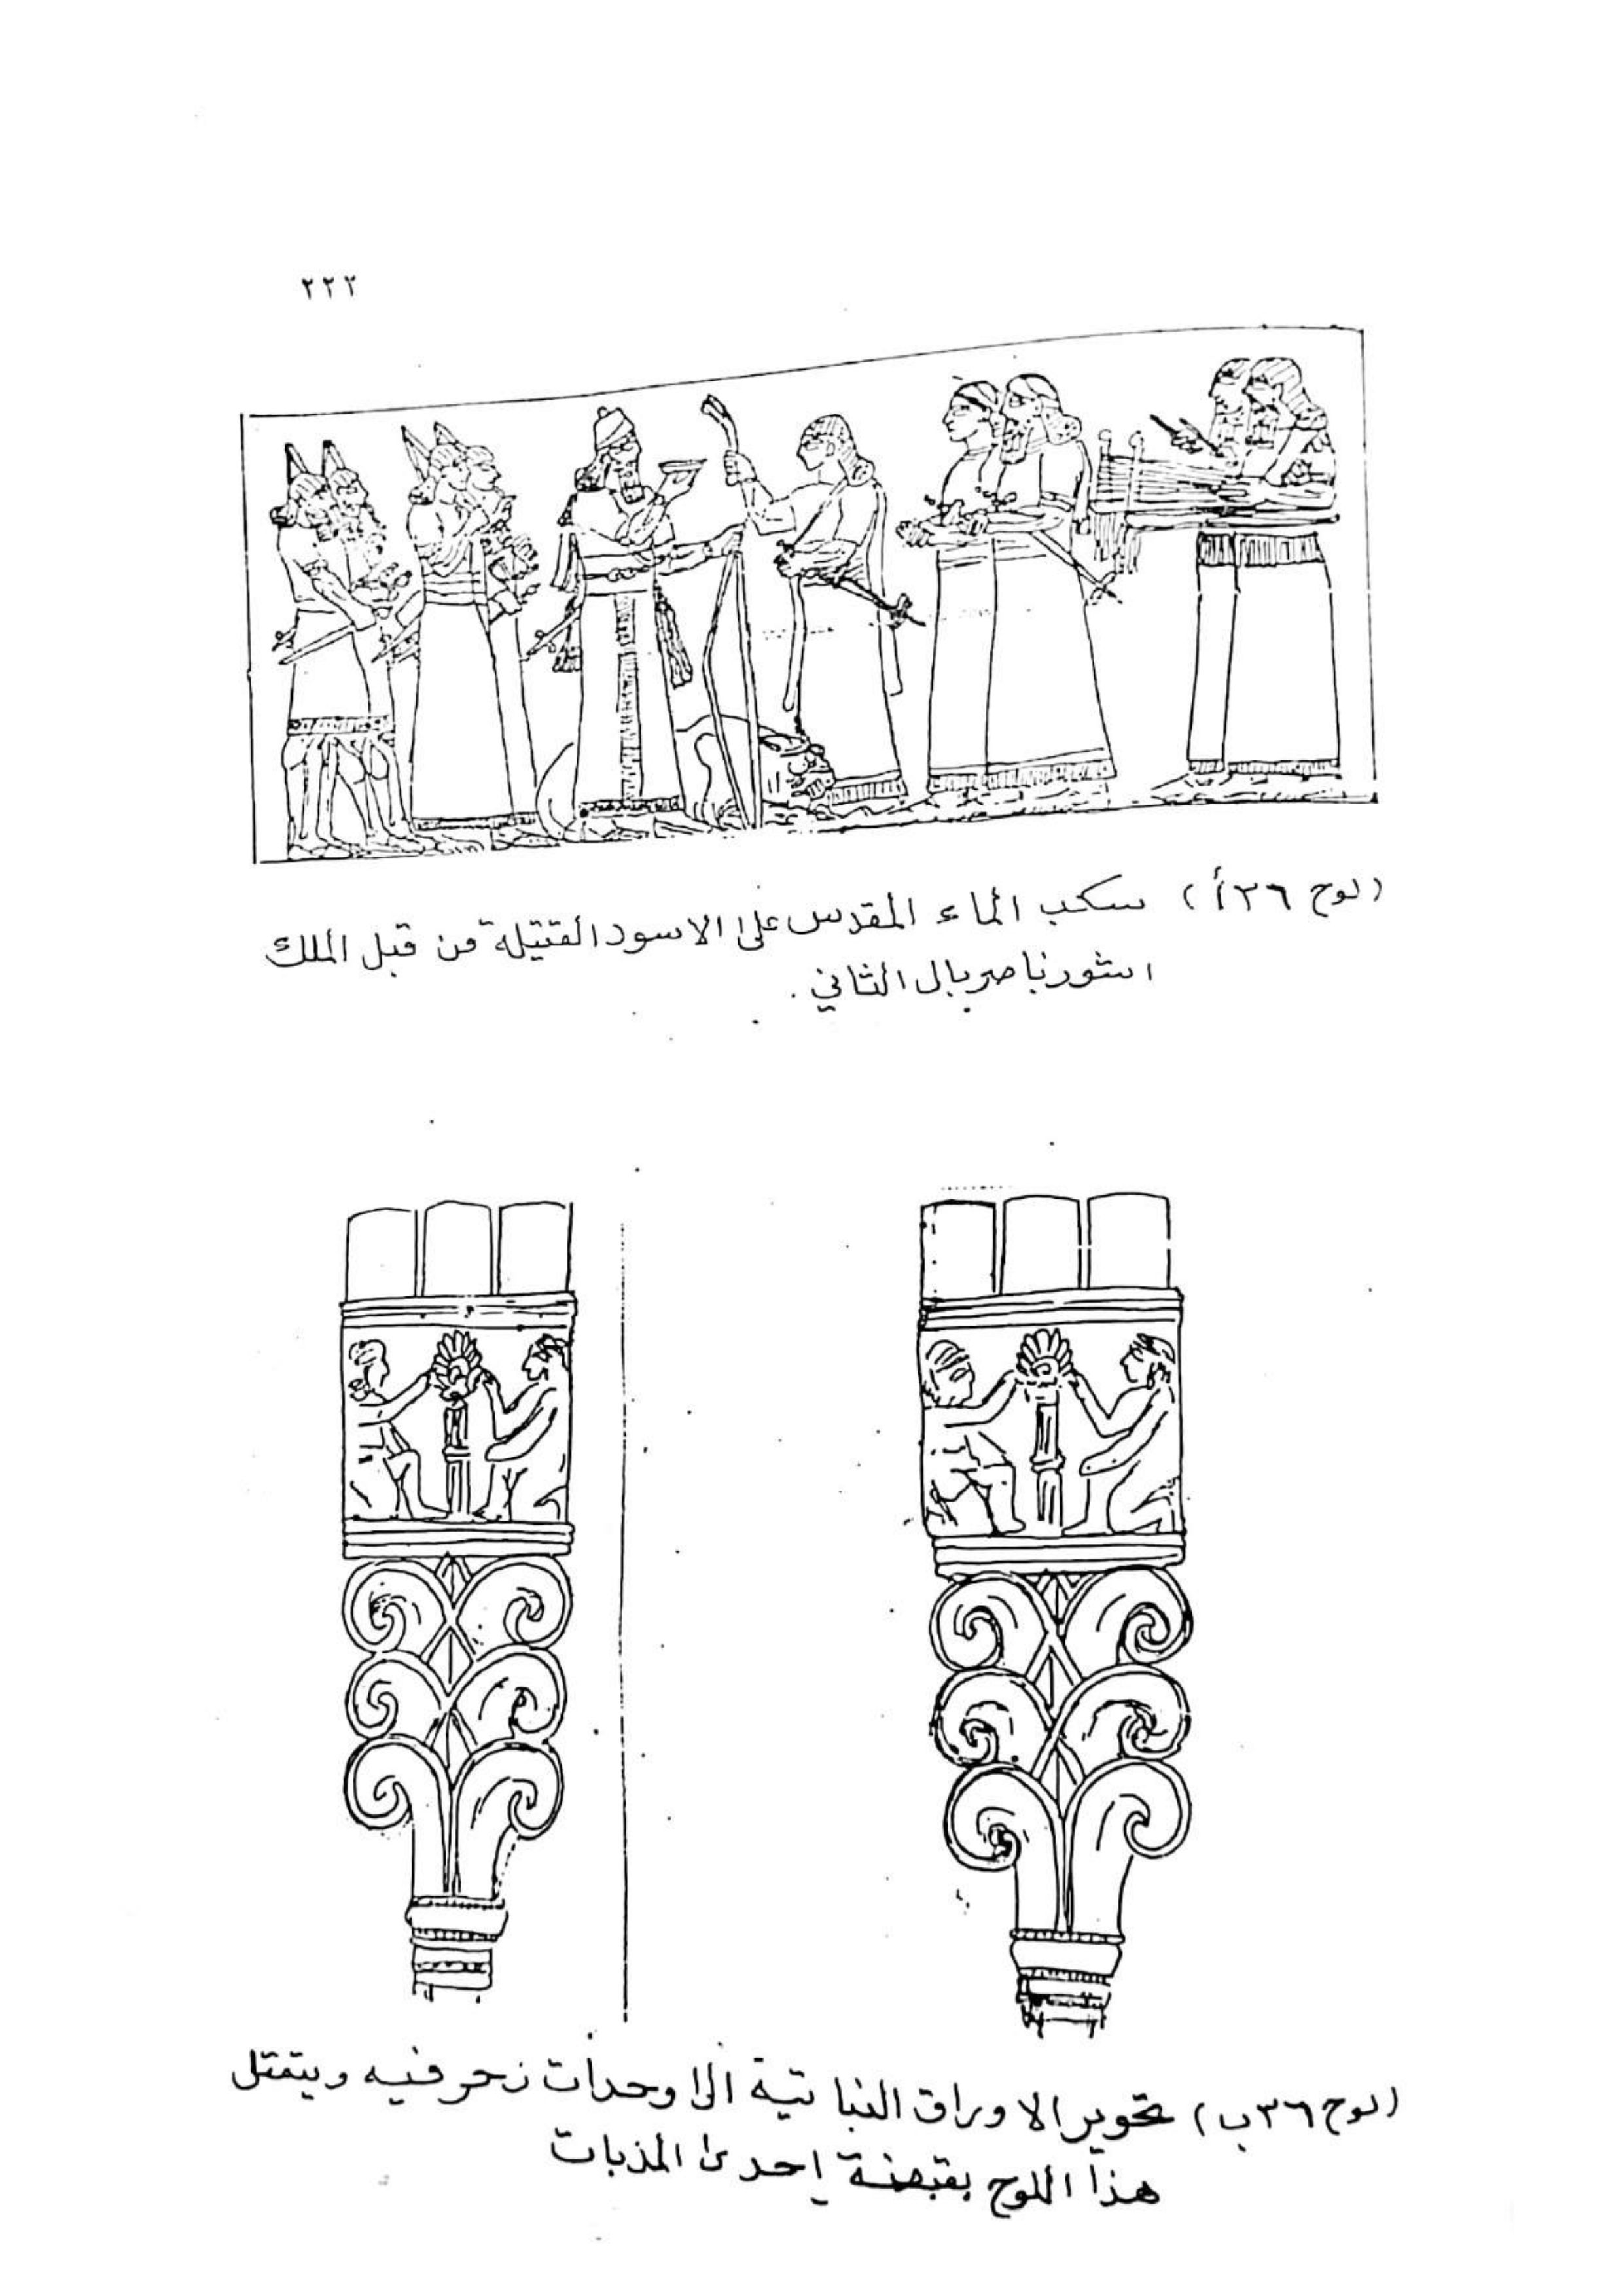 ٢٢٢
(لوح ٣٦أ) سكب الماء المقدس على الاسود القتيلة من قبل الملك
اشورناصربال الثاني .
(لوح ٣٦ب) تحوير الاوراق النباتية الى وحدات زخرفيه ويتمثل
هذا اللوح بقبضة إحدى المذبات